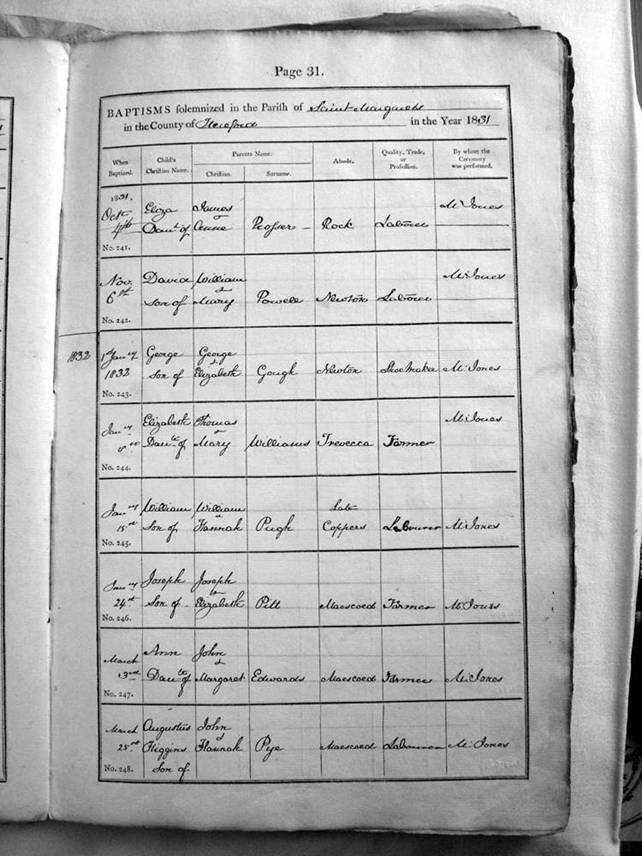 Page 31.
BAPTISMS solemnized in the Parish of Saint Margarets
in the County of Hereford in the Year 1831
When Baptized. Child's Christian Name. Parents Name. Christian. Surname. Abode. Quality, Trade, or Profession. By whom the Ceremony was performed.
1831. Eliza James Mr Jones
Octr 4th Daut of & Anne Prosser Rock Labourer
No. 241.
Nov. David William Mr Jones
6th Son of & Mary Powell Newton Labourer
No. 242.
1832 1st Jany George George
1832 Son of & Elizabeth Gough Newton Shoemaker Mr Jones
No. 243.
Elizabeth Thomas Mr Jones
Jany Daute of & Mary Williams Trevecca Farmer
No. 244.
Jany William William Late
15th Son of & Hannah Pugh Coppers Labourer Mr Jones
No. 245.
Jany Joseph Joseph
24th Son of & Elizabeth Pitt Maescoed Farmer Mr Jones
No. 246.
March Ann John
Daute of & Margaret Edwards Maescoed Farmer Mr Jones
No. 247.
March Augustus John
25th Higgins & Hannah Pye Maescoed Labourer Mr Jones
No. 248. Son of